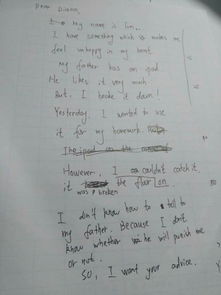 Dear Dianna,
My name is Lin..
I have something which makes me
feel unhappy in my heart.
my father has an ipad
He likes it very much
But. I broke it down!
Yesterday, I wanted to use
it for my homework.
The ipad on the
However, I couldn't catch it.
it the floor on.
was broken
I don't know how to tell to
my father. Because I don't
know whether he will punish me
or not.
So, I want your advice.